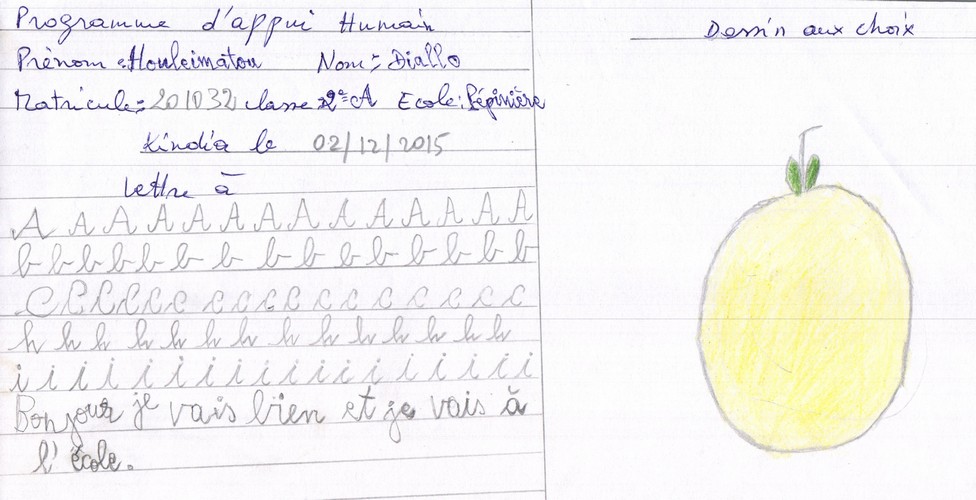 Programme d'appui Humain
Prénom : Houleimatou Nom : Diallo
Matricule : 201032 classe 2e A Ecole : Pépinière
Kindia le 02/12/2015
Lettre à
A A A A A A A A A A A A A A
b b b b b b b b b b b b b b b
C C C C C c c c C C c c c c c c c
h h h h h h h h h h h h h h
i i i i i i i i i i i i i i i i i
Bonjour je vais bien et je vais à
l'école.
Dessin aux choix